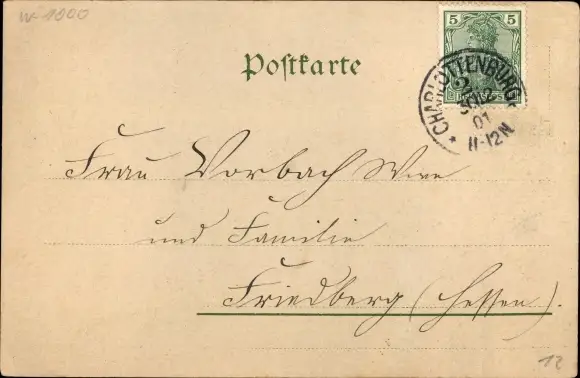 w-1000
Postkarte
5 5
CHARLOTTENBURG
01
11-12N
Frau Vorbach Wwe
und Familie
Friedberg (Hessen).
12